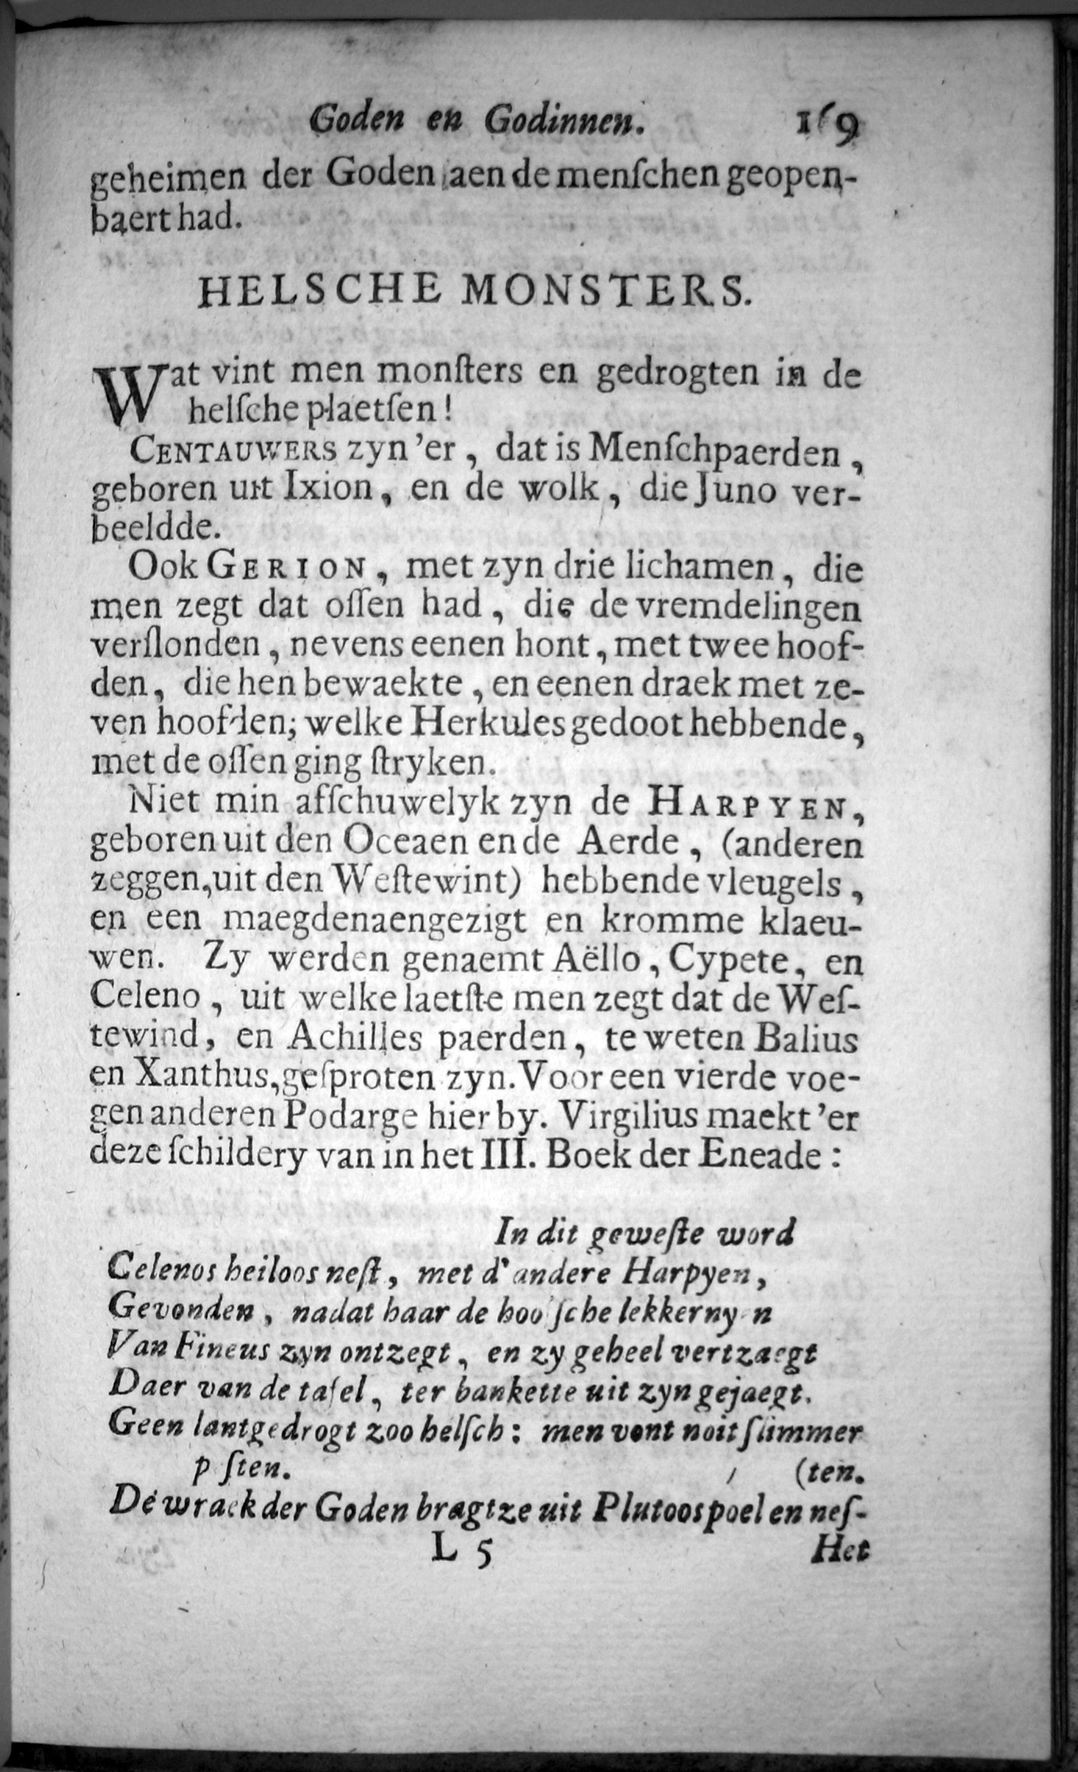 Goden en Godinnen. 169
geheimen der Goden aen de menſchen geopen-
baert had.
HELSCHE MONSTERS.
Wat vint men monſters en gedrogten in de
helſche plaetſen!
CENTAUWERS zyn 'er, dat is Menſchpaerden,
geboren uit Ixion, en de wolk, die Juno ver-
beeldde.
Ook GERION, met zyn drie lichamen, die
men zegt dat oſſen had, die de vremdelingen
verſlonden, nevens eenen hont, met twee hoof-
den, die hen bewaekte, en eenen draek met ze-
ven hoofden; welke Herkules gedoot hebbende,
met de oſſen ging ſtryken.
Niet min afſchuwelyk zyn de HARPYEN,
geboren uit den Oceaen en de Aerde, (anderen
zeggen, uit den Weſtewint) hebbende vleugels,
en een maegdenaengezigt en kromme klaeu-
wen. Zy werden genaemt Aëllo, Cypete, en
Celeno, uit welke laetſte men zegt dat de Weſ-
tewind, en Achilles paerden, te weten Balius
en Xanthus, geſproten zyn. Voor een vierde voe-
gen anderen Podarge hier by. Virgilius maekt 'er
deze ſchildery van in het III. Boek der Eneade:
In dit geweſte word
Celenos heiloos neſt, met d' andere Harpyen,
Gevonden, nadat haar de hooſche lekkerny n
Van Fineus zyn ontzegt, en zy geheel vertzaegt
Daer van de tafel, ter bankette uit zyn gejaegt.
Geen lantgedrogt zoo helſch: men vont noit ſlimmer
p ſten. (ten.
De wraek der Goden bragtze uit Plutoos poel en neſ-
L 5 Het